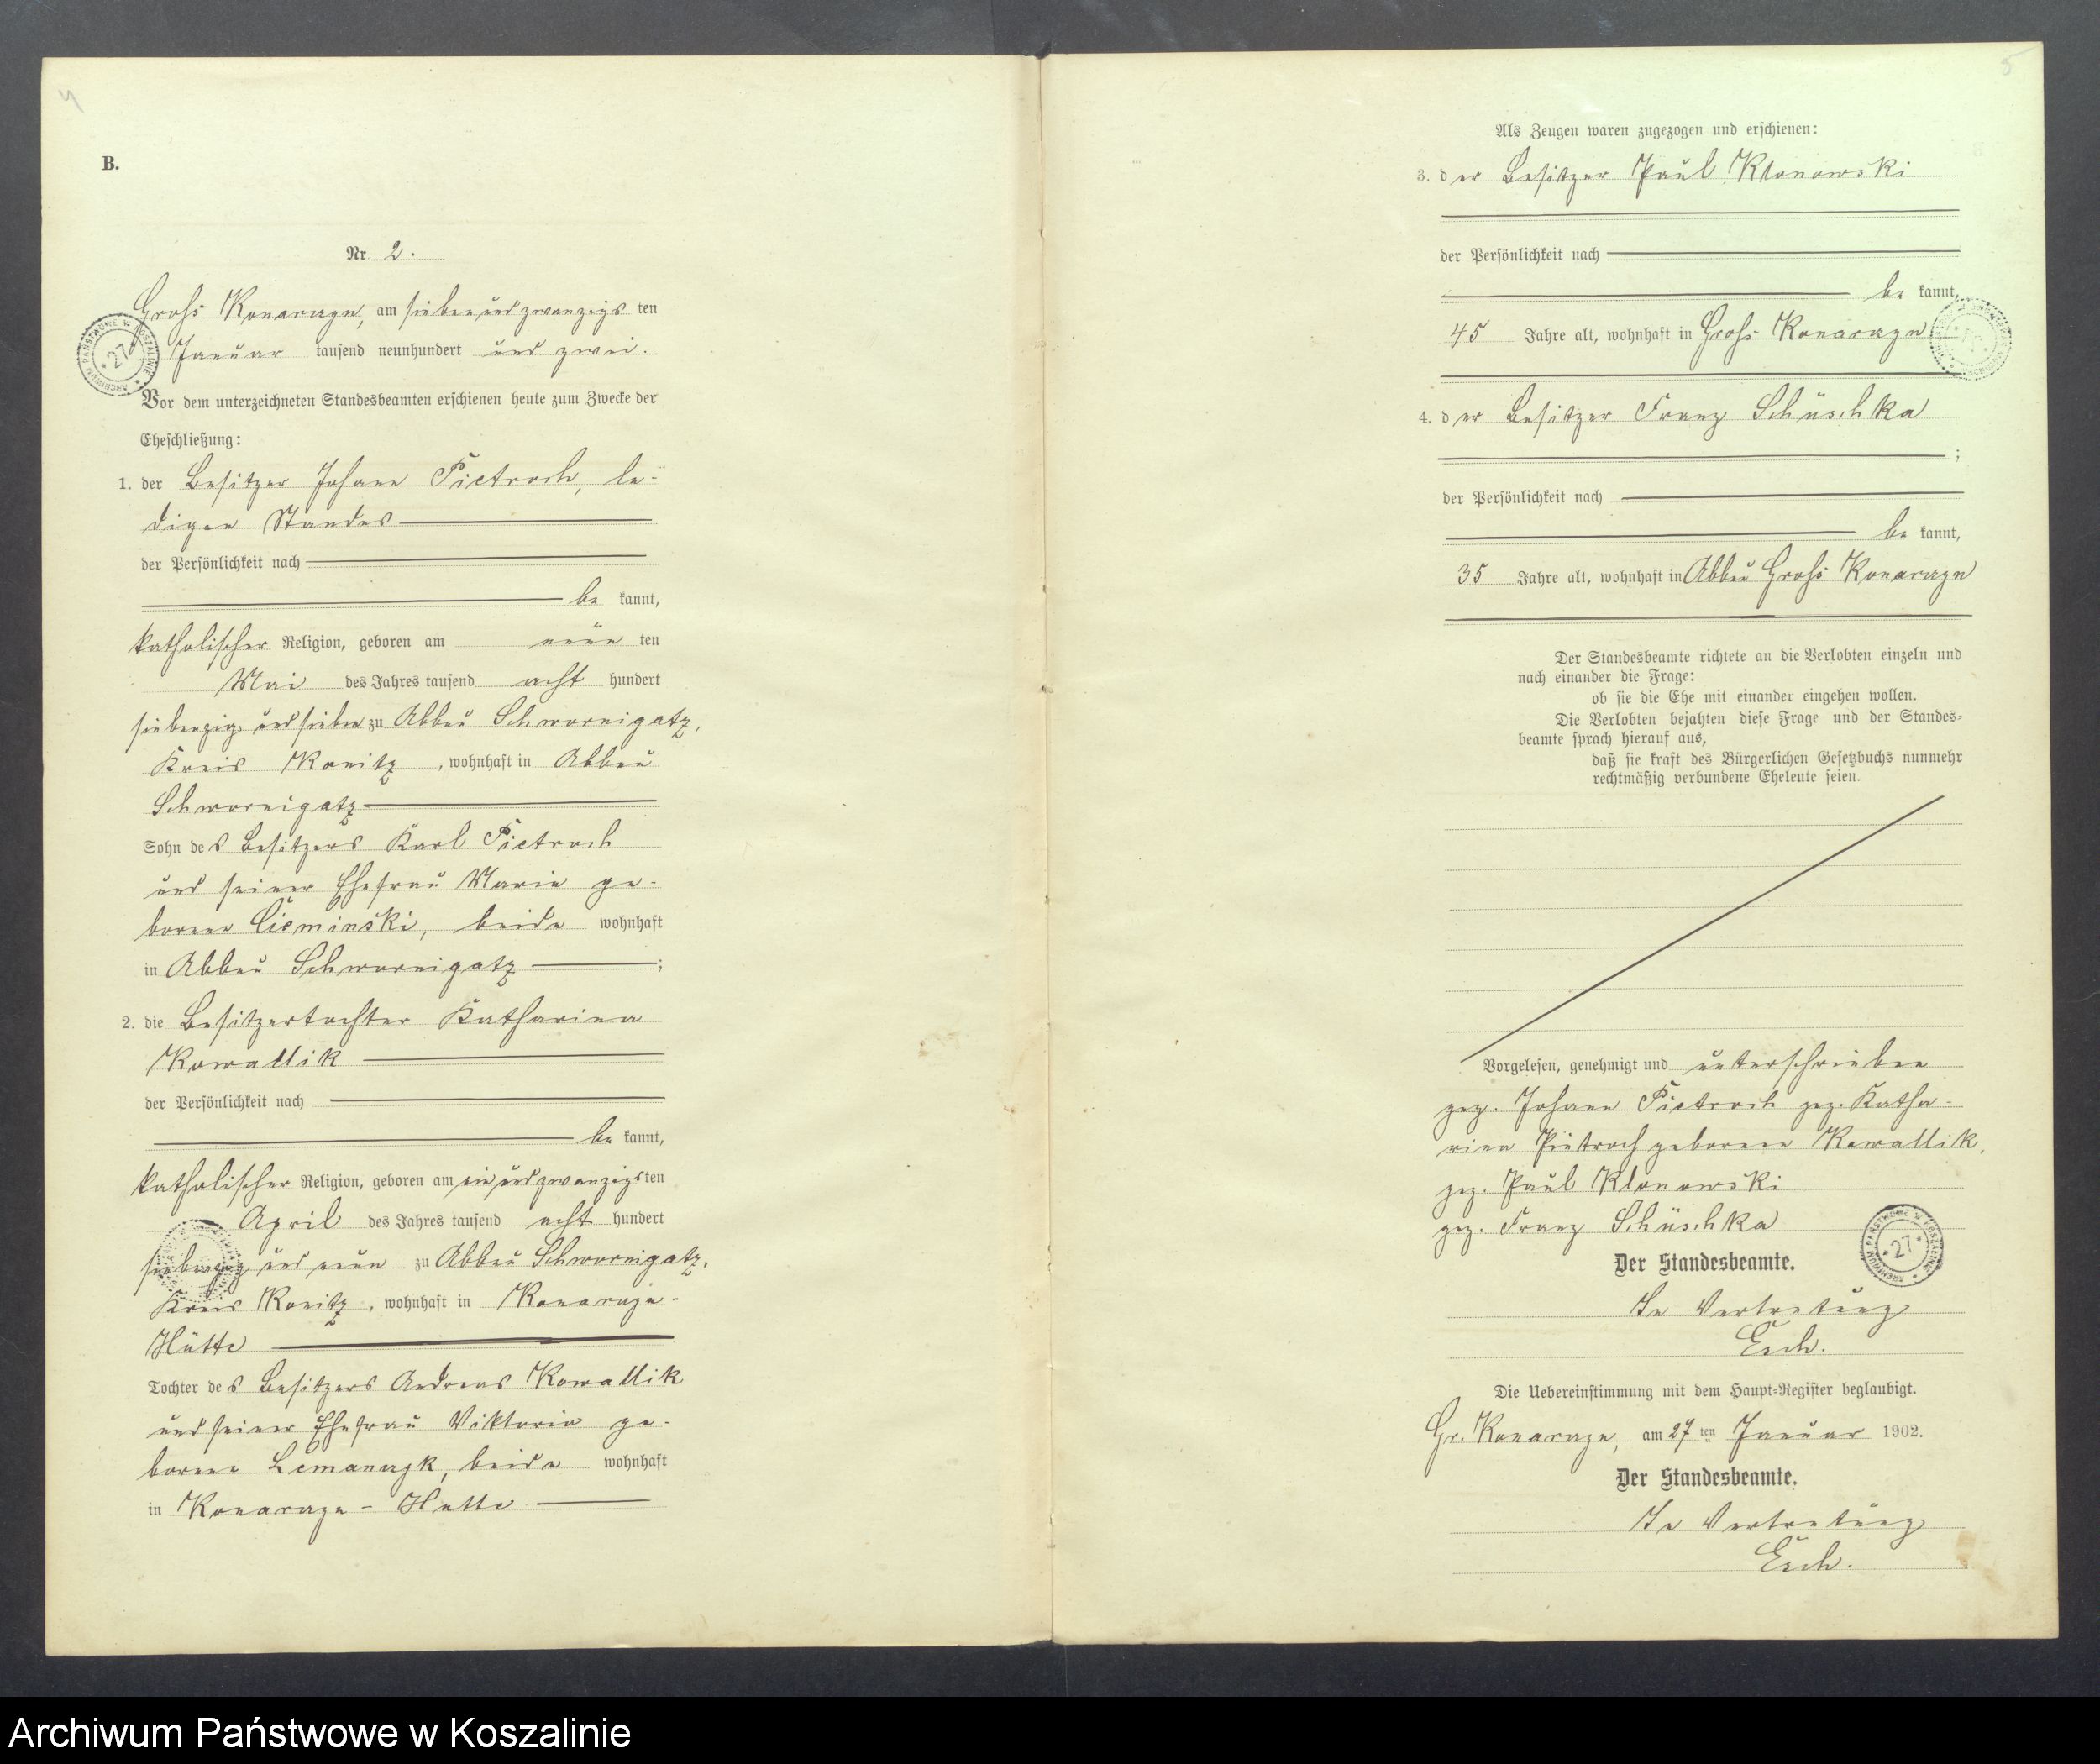 4
B.
Nr. 2.
Gross Konarczyn, am siebenundzwanzigs ten
Januar tausend neunhundert und zwei.
Vor dem unterzeichneten Standesbeamten erschienen heute zum Zwecke der
Eheschließung:
1. der Besitzer Johann Pietroch, le-
digen Standes
der Persönlichkeit nach
be kannt,
katholischer Religion, geboren am neun ten
Mai des Jahres tausend acht hundert
siebenzig und sieben zu Abbau Schwornigatz,
Kreis Konitz, wohnhaft in Abbau
Schwornigatz
Sohn des Besitzers Karl Pietroch
und seiner Ehefrau Marie ge-
borene Cieminski, beide wohnhaft
in Abbau Schwornigatz ;
2. die Besitzertochter Katharina
Kowallik
der Persönlichkeit nach
be kannt,
katholischer Religion, geboren am ein und zwanzigsten
April des Jahres tausend acht hundert
siebenzig und neun zu Abbau Schwornigatz,
Kreis Konitz, wohnhaft in Konarczyn-
Hütte
Tochter des Besitzers Andreas Kowallik
und seiner Ehefrau Viktoria ge-
borene Lemanczyk, beide wohnhaft
in Konarczyn - Hütte
5
Als Zeugen waren zugezogen und erschienen:
3. der Besitzer Paul Klonowski
der Persönlichkeit nach
be kannt,
45 Jahre alt, wohnhaft in Gross Konarczyn
4. der Besitzer Franz Schüschka
;
der Persönlichkeit nach
be kannt,
35 Jahre alt, wohnhaft in Abbau Gross Konarczyn
Der Standesbeamte richtete an die Verlobten einzeln und
nach einander die Frage:
ob sie die Ehe mit einander eingehen wollen.
Die Verlobten bejahten diese Frage und der Standes-
beamte sprach hierauf aus,
daß sie kraft des Bürgerlichen Gesetzbuchs nunmehr
rechtmäßig verbundene Eheleute seien.
Vorgelesen, genehmigt und unterschrieben
gez. Johann Pietroch gez. Katha-
rina Pietroch geborene Kowallik,
gez. Paul Klonowski
gez. Franz Schüschka
ARCHIWUM PAŃSTWOWE W KOSZALINIE
27
Der Standesbeamte.
In Vertretung
Esch.
Die Uebereinstimmung mit dem Haupt-Register beglaubigt.
Gr. Konarczyn, am 27 ten Januar 1902.
Der Standesbeamte.
In Vertretung
Esch.
Archiwum Państwowe w Koszalinie